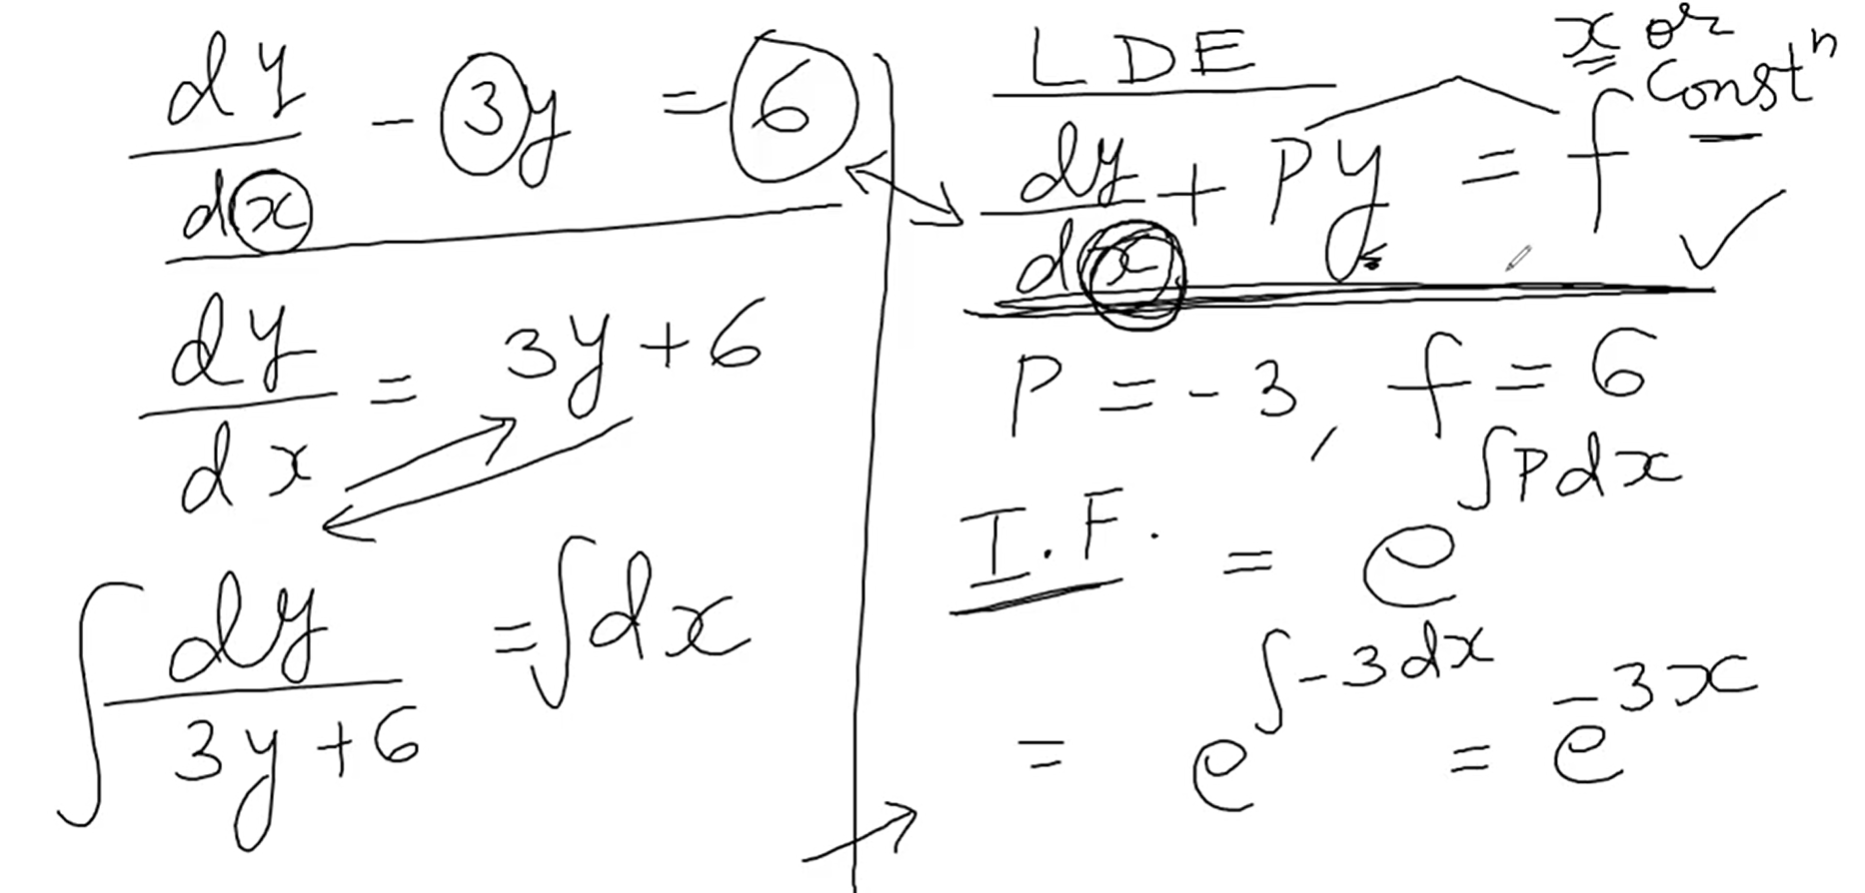 dy/dx - 3y = 6
dy/dx = 3y + 6
∫ dy/(3y + 6) = ∫ dx
LDE
x or
Constⁿ
dy/dx + Py = f
P = -3, f = 6
I.F. = e^∫Pdx
= e^∫-3dx = e^-3x